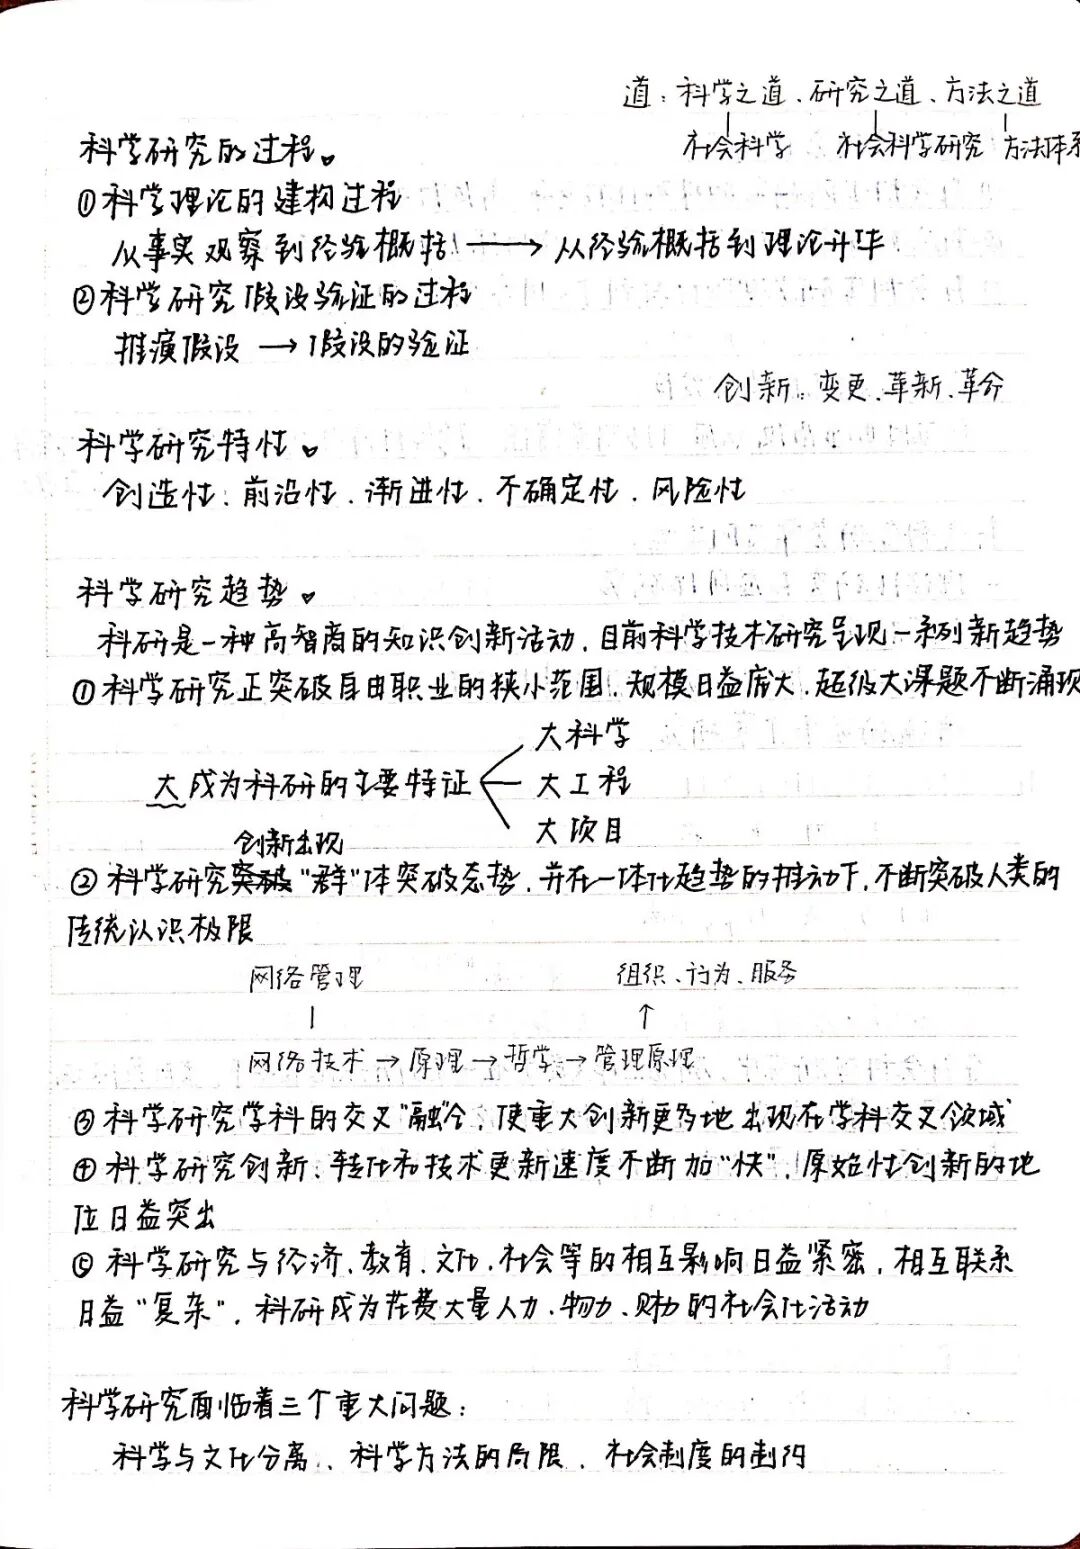 道：科学之道、研究之道、方法之道
社会科学 社会科学研究 方法体系
科学研究的过程。
①科学理论的建构过程
从事实观察到经验概括 → 从经验概括到理论升华
②科学研究假设验证的过程
推演假设 → 假设的验证
创新：变更、革新、革命
科学研究特性
创造性：前沿性、渐进性、不确定性、风险性
科学研究趋势
科研是一种高智商的知识创新活动，目前科学技术研究呈现一系列新趋势
①科学研究正突破自由职业的狭小范围，规模日益庞大，超级大课题不断涌现
大科学
大成为科研的主要特征
大工程
大项目
创新出现
②科学研究突破"群"体突破态势，并在一体化趋势的推动下，不断突破人类的
传统认识极限
网络管理 组织、行为、服务
网络技术→原理→哲学→管理原理
③科学研究学科的交叉"融"合，使重大创新更多地出现在学科交叉领域
④科学研究创新、转化和技术更新速度不断加"快"，原始性创新的地
位日益突出
⑤科学研究与经济、教育、文化、社会等的相互影响日益紧密，相互联系
日益"复杂"，科研成为花费大量人力、物力、财力的社会化活动
科学研究面临着三个重大问题：
科学与文化分离、科学方法的局限、社会制度的制约